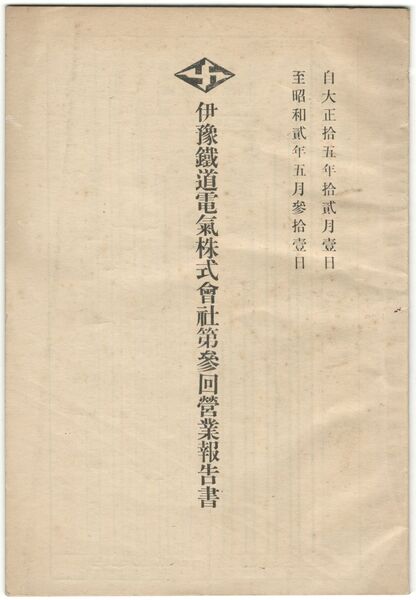 自大正拾五年拾貳月壹日
至昭和貳年五月參拾壹日
伊豫鐵道電氣株式會社第參回營業報告書